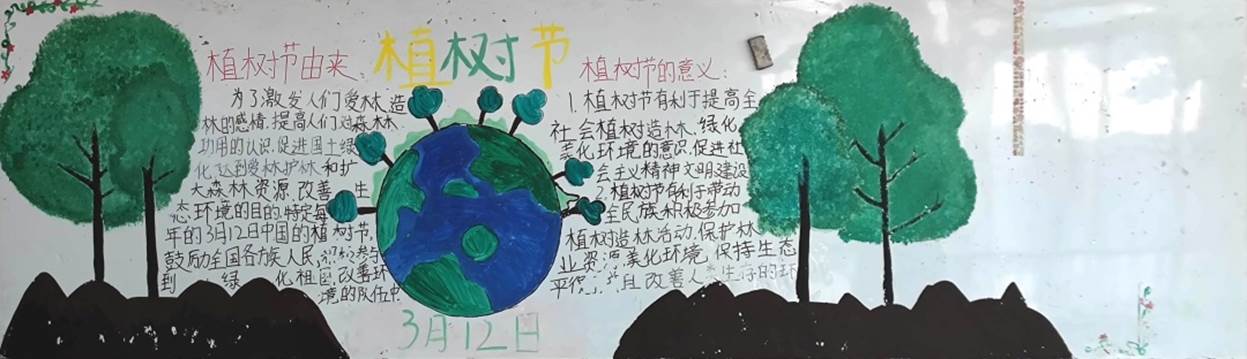 植树节
植树节由来:
为了激发人们爱林、造
林的感情,提高人们对森林
功用的认识,促进国土绿
化,达到爱林护林和扩
大森林资源、改善生
态环境的目的,特定每
年的3月12日中国的植树节,
鼓励全国各族人民积极参与
到绿化祖国,改善环
境的队伍中
植树节的意义:
1.植树节有利于提高全
社会植树造林、绿化
美化环境的意识,促进社
会主义精神文明建设
2.植树节有利于带动
全民族积极参加
植树造林活动,保护林
业资源,美化环境,保持生态
平且改善人类生存的环
3月12日